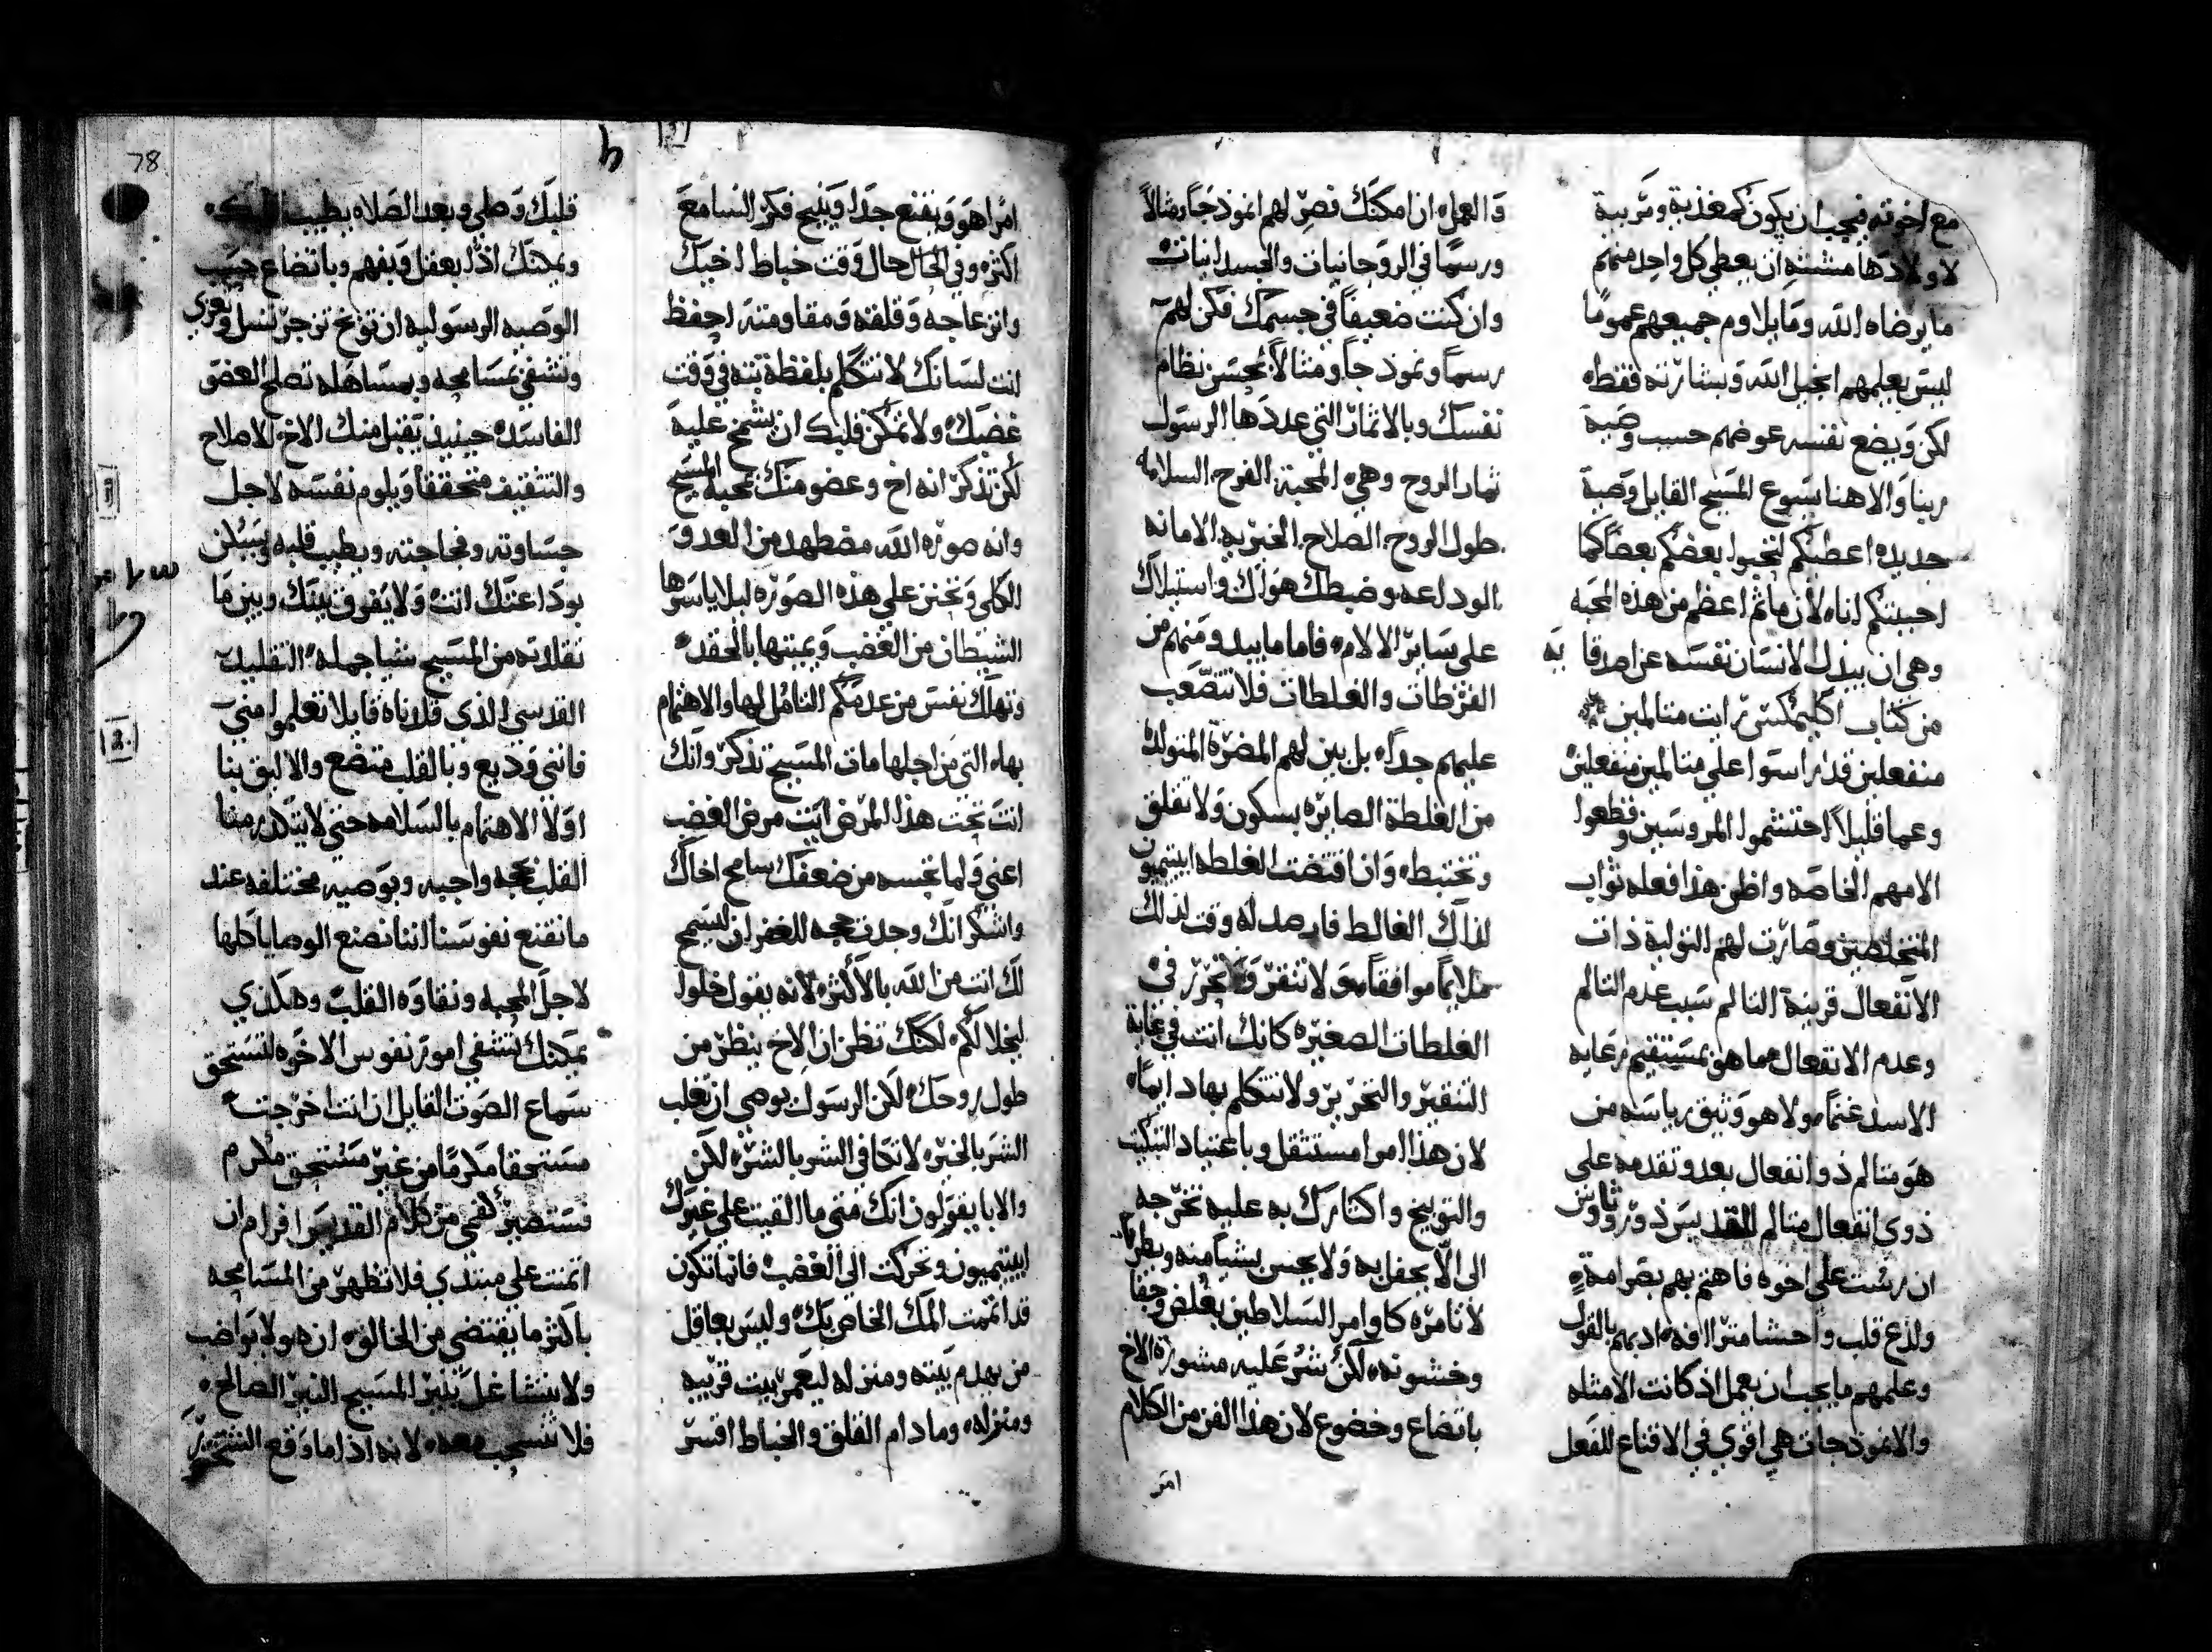 مع اخوته فيجب ان يكون كمغذية ومربية
لاولادها مشتته ان يعطي كل واحد منهم
ما يرضاه الله وما يلاوم جميعهم عموما
ليس يعلمهم انجيل الله وبشارته فقط
لكن ويضع نفسه عوضهم حسب وصية
ربنا والاهنا يسوع المسيح القايل وصية
جديده اعطيكم لتحبوا بعضكم بعضا كما
احببتكم انا لان ما ثم اعظم من هذه المحبه
وهي ان يبذل الانسان نفسه عن اصدقايه
من كتاب اكليمكس رايت متالمين
منفعلين قد راسوا علي متالمين منفعلين
وعما قليلا احتشموا المروسين وقطعوا
الامهم الخاصه واظن هذا فعله ثواب
المتخلصين وصارت لهم التولية ذات
الانفعال قرينة التالم سبب عدم التالم
وعدم الانفعال مما هو بمستقيم رعايه
الاسد غنما ولا هو وثيق رياسه من
هو متالم ذو انفعال بعد وتقدمه علي
ذوي انفعال متالم للقديس ذوروثاوس
ان رست علي اخوه فاهتم بهم بصرامة
ولذع قلب واحشا متراافه ادبهم بالقول
وعلمهم ما يجب ان يعمل اذ كانت الامثله
والانموذجات هي اقوي في الاقناع للفعل
والعمل ان امكنك فصر لهم انموذجا ومثالا
ورسما في الروحانيات والجسدانيات
وان كنت ضعيفا في جسمك فكن لهم
رسما ونموذجا ومثالا بحسن نظام
نفسك وبالاثمار التي عددها الرسول
ثمار الروح وهي المحبة الفرح السلامه
طول الروح الصلاح الخيريه الامانه
الوداعه وضبطك هواك واستيلاك
علي ساير الالام فاما ما يبدو منهم من
الفرطات والغلطات فلا تتصعب
عليهم جدا بل بين لهم المضرة المتولدة
من الغلطة الصايره بسكون ولا تقلق
وتختبط وان اقتضت الغلطه ابيتيميون
لذاك الغالط فارصد له وقت لذلك
ملايما موافقا ولا تنقر وتحرر في
الغلطات الصغيره كانك انت في غاية
التنقير والتحرير ولا تتكلم بها دايما
لان هذا امرا مستثقل وباعتياد التبكيت
والتوبيخ واكثارك به عليه تخرجه
الي الا يحفل به ولا يحس بشيا منه ويطرحه
لا تامره كاوامر السلاطين بغلظ وجفا
وخشونه لكن شر عليه مشورة الاخ
باتضاع وخضوع لان هذا الفن من الكلام
امر
78
امرا هو ويقنع جدا وينيح فكر السامع
اكثره وفي الحال حال وقت خباط اخيك
وانزعاجه وقلقه ومقاومته احفظ
انت لسانك لا تتكلم بلفظة بته في وقت
غضبك ولا تمكن قلبك ان يشمخ عليه
لكن تذكر انه اخ وعضو منك بمحبة المسيح
وانه صورة الله مضطهد من العدو
الكلي وتحنن علي هذه الصوره ليلا ياسرها
الشيطان من الغضب ويميتها بالحقد
وتهلك نفس من عدمكم التامل لها والاهتمام
بها التي من اجلها مات المسيح تذكر وانك
انت تحت هذا المرض ايت مرض الغضب
اعني ولما تحسه من ضعفك سامح اخاك
واشكر انك وجدت حجه للغفران ليسمح
لك انت من الله بالاكثر لانه يقول خلوا
ليخلا لكم لكنك تظن ان الاخ ينظر من
طول روحك لكن الرسول يوصي ان تغلب
الشر بالخير لا تكافي الشر بالشر لكن
والابا يقولون انك متي ما القيت علي غيرك
ابيتيميون وتحركت الي الغضب فانما تكون
قد اتممت المك الخاص بك وليس بعاقل
من يهدم بيته ومنزله ليعمر بيت قريبه
ومنزله وما دام القلق والخباط اقسر
قلبك وصلي وبعد الصلاه يطيب قلبك
ويمكنك اذا بعقل وبفهم وباتضاع حسب
الوصيه الرسوليه ان توبخ تزجر تسل وتعزي
وتشفي بمسامحه وبمساهله تصلح العضو
الفاسد حينيذ يقبل منك الاخ الاصلاح
والتثقيف متحققا ويلوم نفسه لاجل
جساوته وفجاجته ويطيب قلبه ويسكن
بوداعتك انت ولا يفرق بينك وبين ما
تقلدته من المسيح شيا جمله التقليد
القدسي الذي قلدناه قايلا تعلموا مني
فانني وديع وبالقلب متضع والاليق بنا
اولا الاهتمام بالسلامه حتي لا يتكدر منا
القلب بحجه واجبه وبوصيه مختلفه عند
ما نقنع نفوسنا اننا نصنع الوصايا كلها
لاجل المحبه ونقاوه القلب وهكذي
يمكنك تشفي امور نفوس الاخوه لتستحق
سماع الصوت القايل ان انت اخرجت
مستحقا مكرما من غير مستحق مكرم
فستصير كفمي من كلام القديس افرام ان
اتمنت علي مبتدي فلا تظهر من المسامحه
باكثر ما يقتضي من الخالق ان هو لا يواضب
ولا يتشاغل بنير المسيح النير الصالح
فلا تنسحب معه لانه اذا ما وقع التشجير